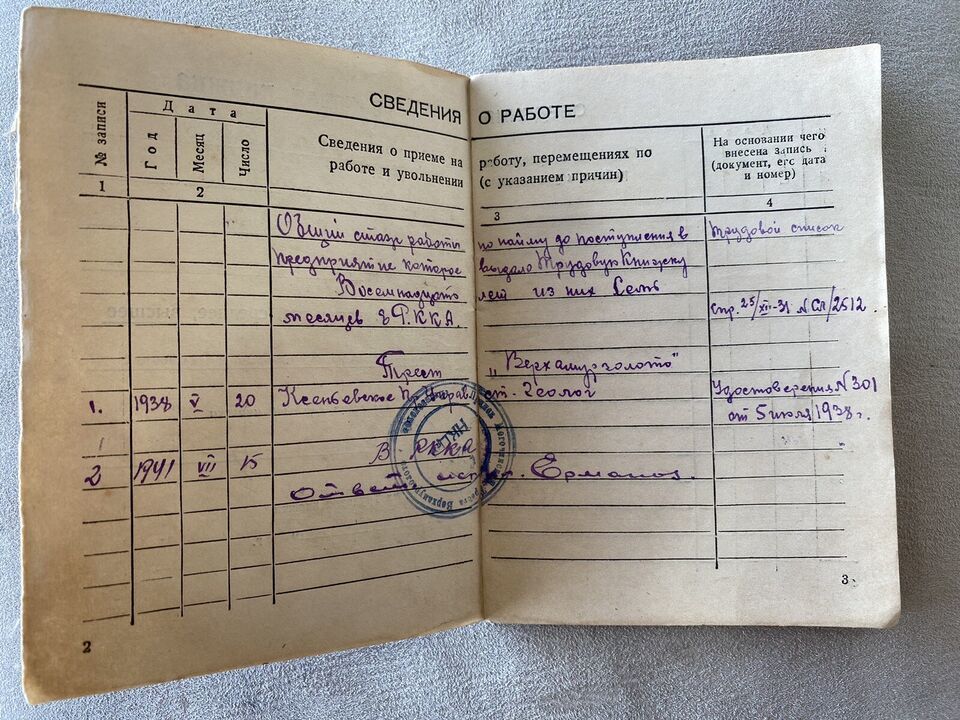 СВЕДЕНИЯ О РАБОТЕ
№ записи
Дата
Год
Месяц
Число
Сведения о приеме на работу, перемещениях по
работе и увольнении (с указанием причин)
На основании чего
внесена запись
(документ, его дата
и номер)
1 2 3 4
Общий стаж работы по найму до поступления в
предприятие которое выдало Трудовую Книжку
Восемнадцать лет из них семь
месяцев в РККА.
Трудовой список
спр. 25/XII-31 N Сл/2512.
Трест „Верхамурзолото"
1. 1938 V 20 Ксеньевское П. Управл ст. Геолог
Удостоверения N 301
от 5 июля 1938 г.
2 1941 VII 15 В РККА
Ответ. Ермаков.
2
3